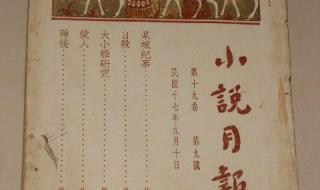 小說月報
第十九卷 第九號
民國十七年九月十日
某城紀事
自殺
大小雅研究
愛人
雨後